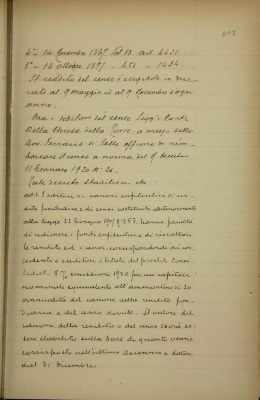 4° - 24 Novembre 1867 Vol. 83 art. 4431
8° - 16 Ottobre 1897 - 258 - 1434
Il reddito del censo è esigibile in due
rate al 9 Maggio ed al 9 Novembre d'ogni
anno.
Ora i debitori del censo
della Chiesa della a mezzo dello
Don offrono di rim-
borsare il censo a norma del R. Decreto
11 Gennaio 1920 N. 26.
Tale decreto stabilisce che
di canoni enfiteutici di ren-
dite fondiarie e di censi costituiti anteriormente
alla legge 22 Giugno hanno facoltà
di redimere i fondi enfiteutici e di riscattare
le rendite ed i censi, corrispondendo ai con-
cedenti e creditori titoli del prestito Conso-
lidato 5% emissione 1920 per un capitale
nominale equivalente all'ammontare di 20
annualità del canone della rendita fon-
diaria o del censo dovuti. Il valore del
canone, della rendita o del censo dovrà es-
sere stabilito sulla base di quanto venne
corrisposto nell'ultima annata a datare
dal 31 Dicembre.